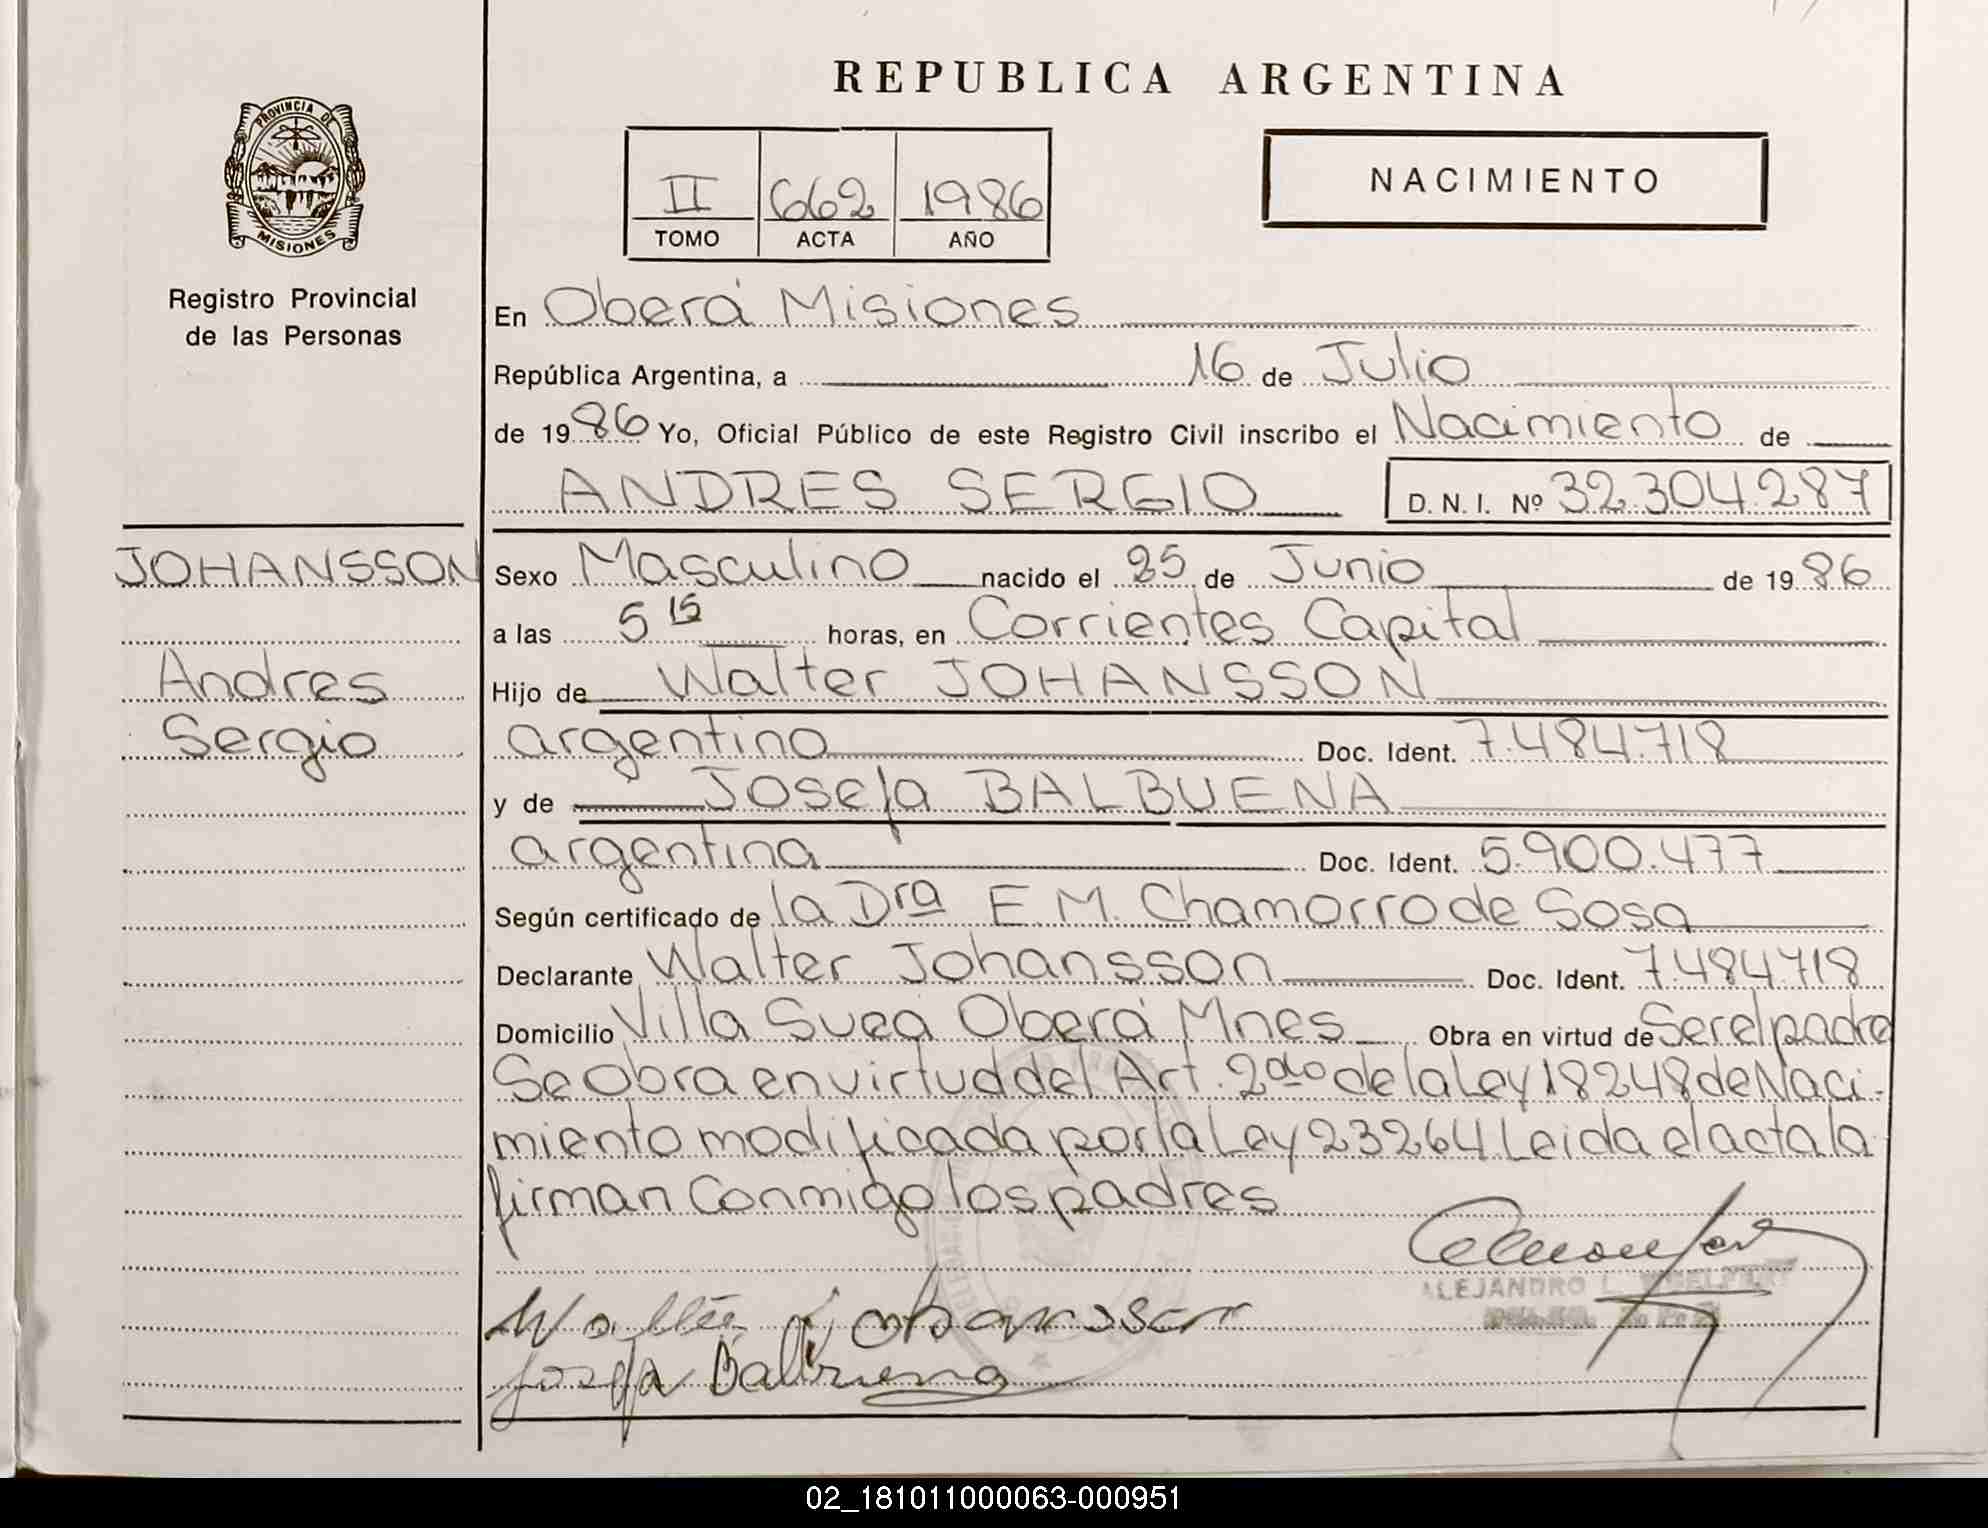 REPUBLICA ARGENTINA
PROVINCIA DE
MISIONES
Registro Provincial
de las Personas
II 662 1986
TOMO ACTA AÑO
NACIMIENTO
En Oberá Misiones
República Argentina, a 16 de Julio
de 1986 Yo, Oficial Público de este Registro Civil inscribo el Nacimiento de
ANDRES SERGIO D. N. I. Nº 32.304.287
JOHANSSON
Andres
Sergio
Sexo Masculino nacido el 25 de Junio de 1986
a las 5 15 horas, en Corrientes Capital
Hijo de Walter JOHANSSON
argentino Doc. Ident. 7.484.718
y de Josefa BALBUENA
argentina Doc. Ident. 5.900.477
Según certificado de la Dra E.M. Chamorro de Sosa
Declarante Walter Johansson Doc. Ident. 7.484.718
Domicilio Villa Suea Oberá Mnes Obra en virtud de Ser el padre
Se Obra en virtud del Art. 2do de la Ley 18248 de Naci-
miento modificada por la Ley 23264 Leida el acta la
firman Conmigo los padres
ALEJANDRO L.
Walter Johansson
Josefa Balbuena
02_181011000063-000951